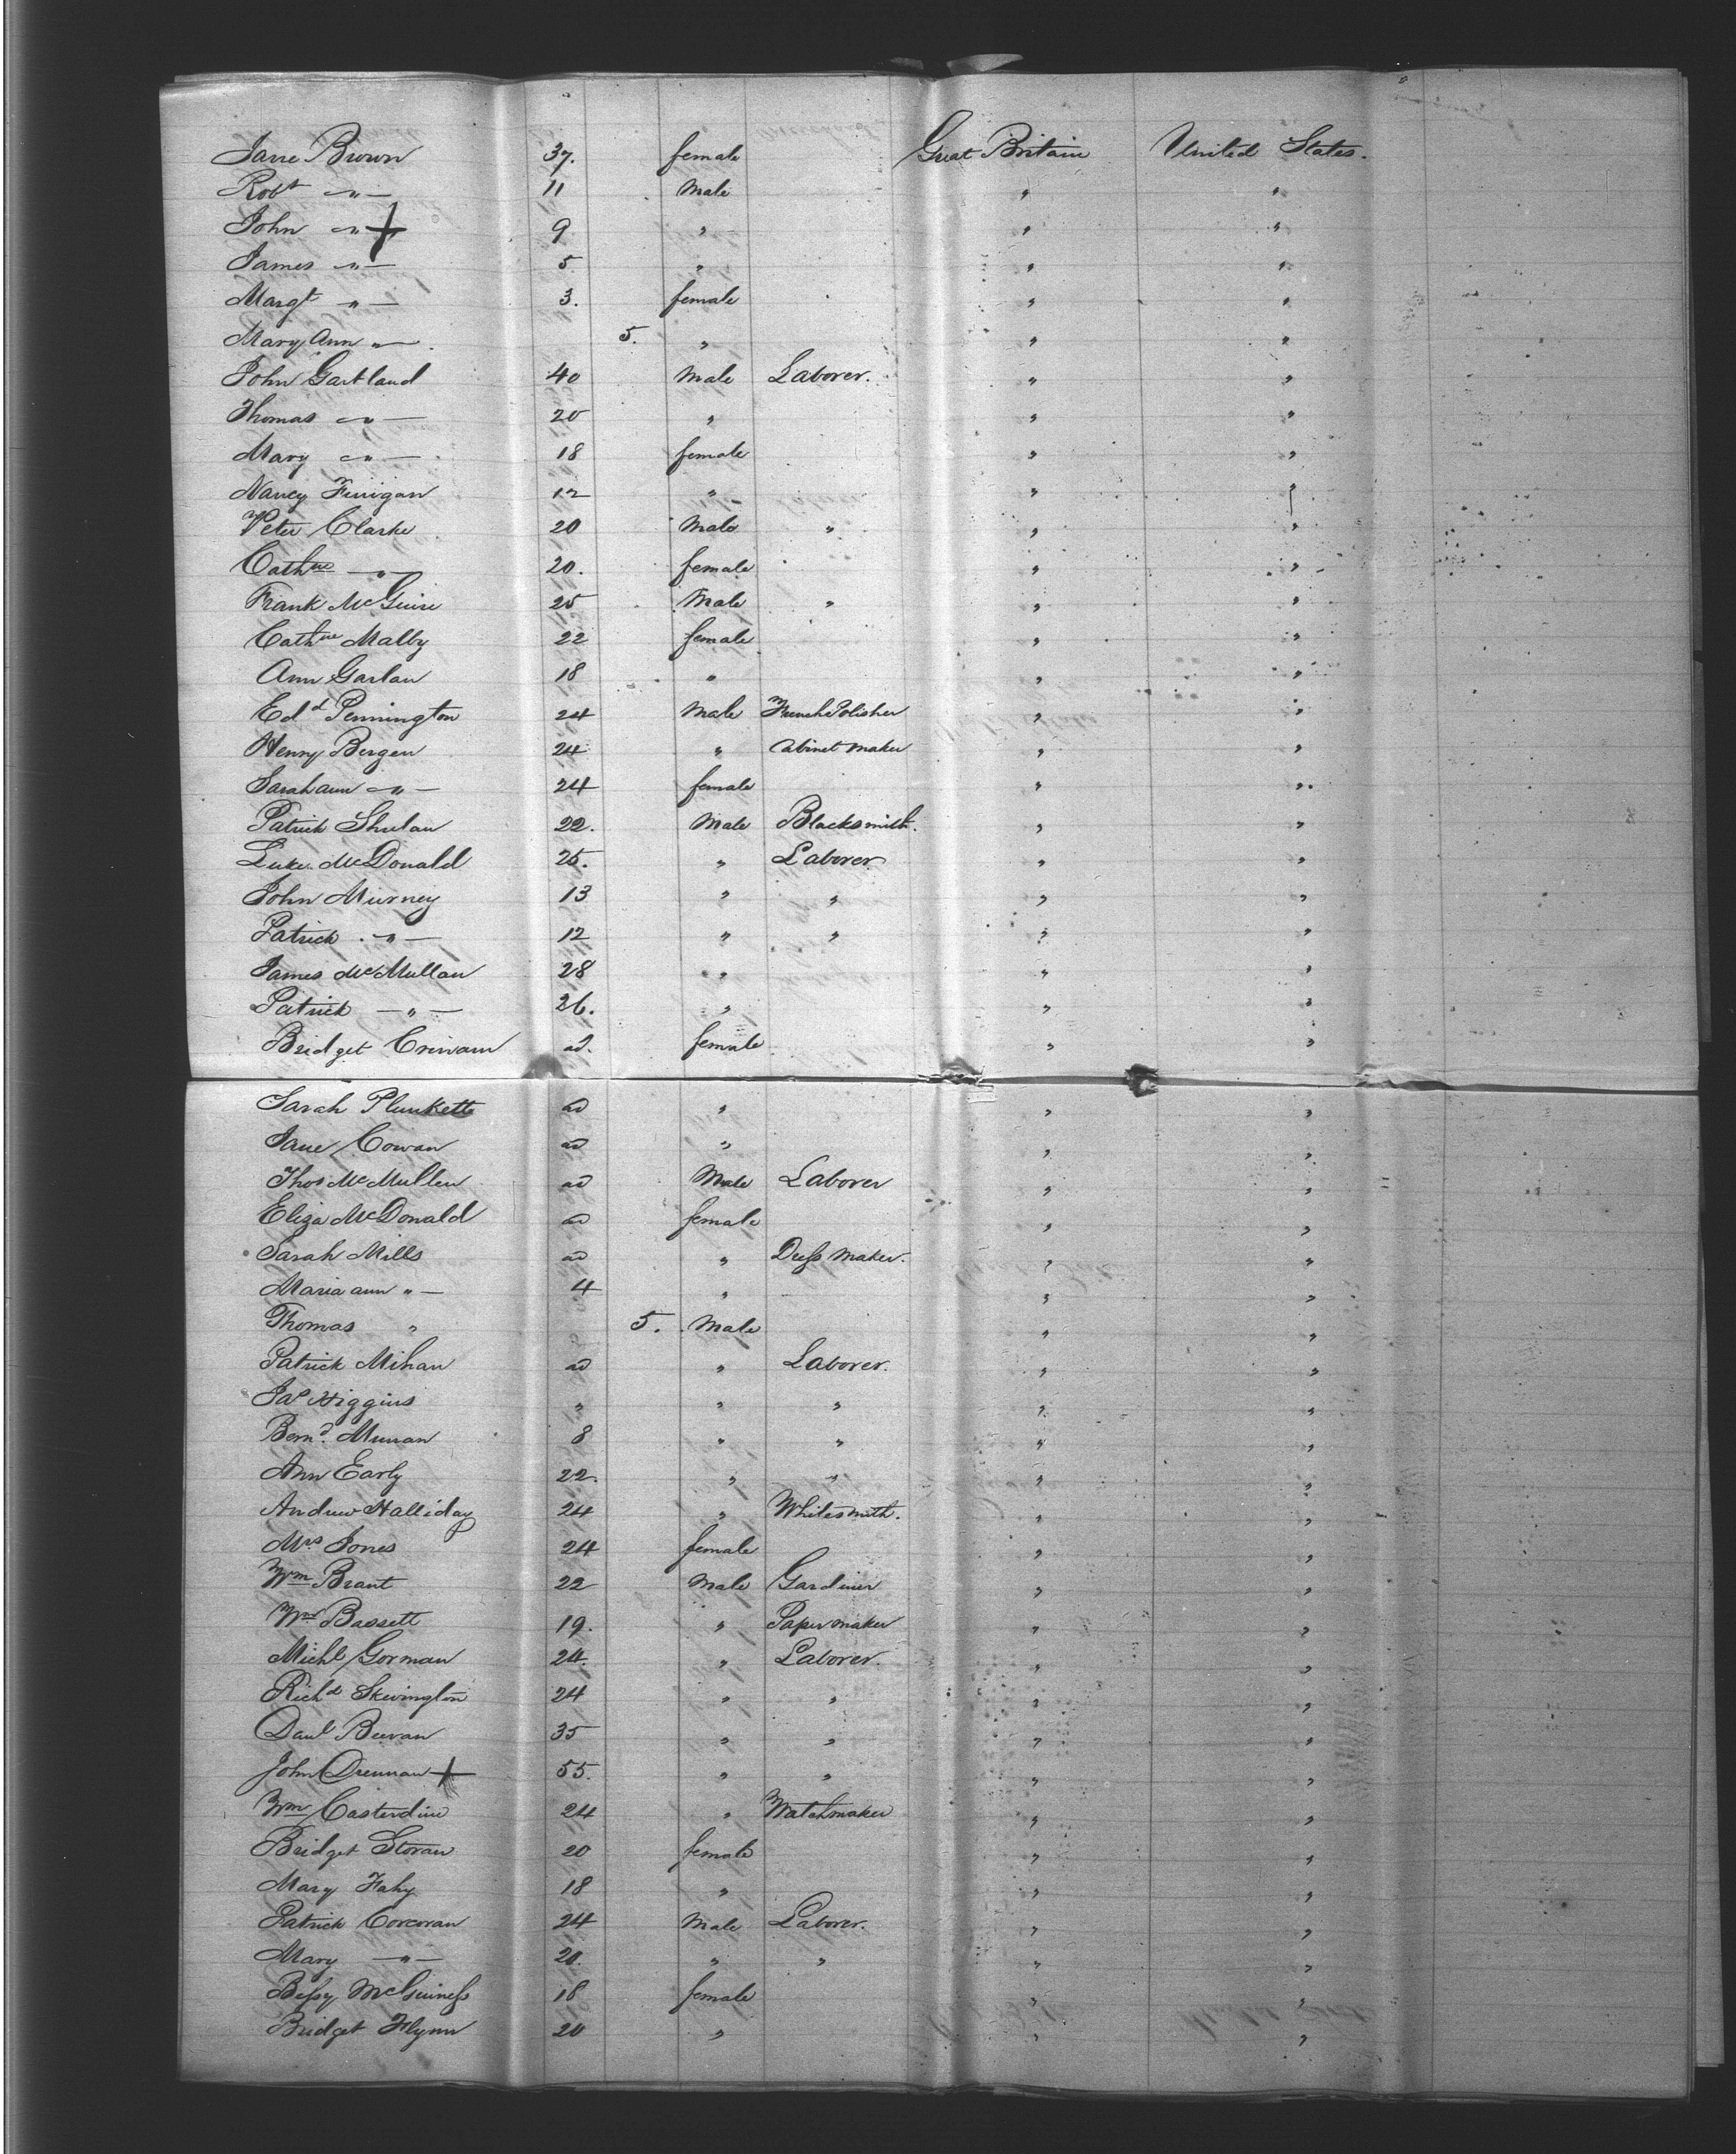 Jane Brown 37. female Great Britain United States.
Robt —"— 11 Male " "
John —"— + 9 " " "
James —"— 5 " " "
Margt —"— 3. female " "
Mary Ann "— . 5. " " "
John Gartland 40 Male Laborer. " "
Thomas —"— 20 " " "
Mary —"— 18 female " "
Nancy Finigan 12 " " "
Peter Clarke 20 Male " " "
Cathne —"— 20. female " "
Frank McGuire 25 Male " " "
Cathne Malby 22 female " "
Ann Garlan 18 " " "
Edd Pennington 24 Male French Polisher " "
Henry Bergen 24 " Cabinet maker " "
Sarah ann —"— 24 female " "
Patrick Shulan 22. Male Blacksmith. " "
Luke McDonald 25. " Laborer " "
John Murney 13 " " " "
Patrick —"— 12 " " " "
James McMullan 28 " " "
Patrick —"— 26. " " "
Bridget ad. female " "
Sarah Plunkett ad " " "
Jane Cowan ad " " "
Thos McMullen ad Male Laborer " "
Eliza McDonald ad female " "
Sarah Mills ad " Dress maker. " "
Maria ann "— 4 " " "
Thomas " 5. Male " "
Patrick Mihan ad " Laborer. " "
Jas Higgins " " " " "
Bernd. Murran 8 " " " "
Ann Early 22. " " " "
Andrew Halliday 24 " Whitesmith. " "
Mrs Jones 24 female " "
Wm Brant 22 Male Gardiner " "
Wm Bassett 19. " Paper maker " "
Michl Gorman 24. " Laborer. " "
Richd Skevington 24 " " " "
Danl Bevan 35 " " " "
John Drennan + 55. " " " "
Wm Casterdine 24 " Watchmaker " "
Bridget Storan 20 female " "
Mary Fahy 18 " " "
Patrick Corcoran 24 Male Laborer. " "
Mary —"— 20. " " " "
Bessy McGuiness 18 female " "
Bridget Flynn 20 " " "